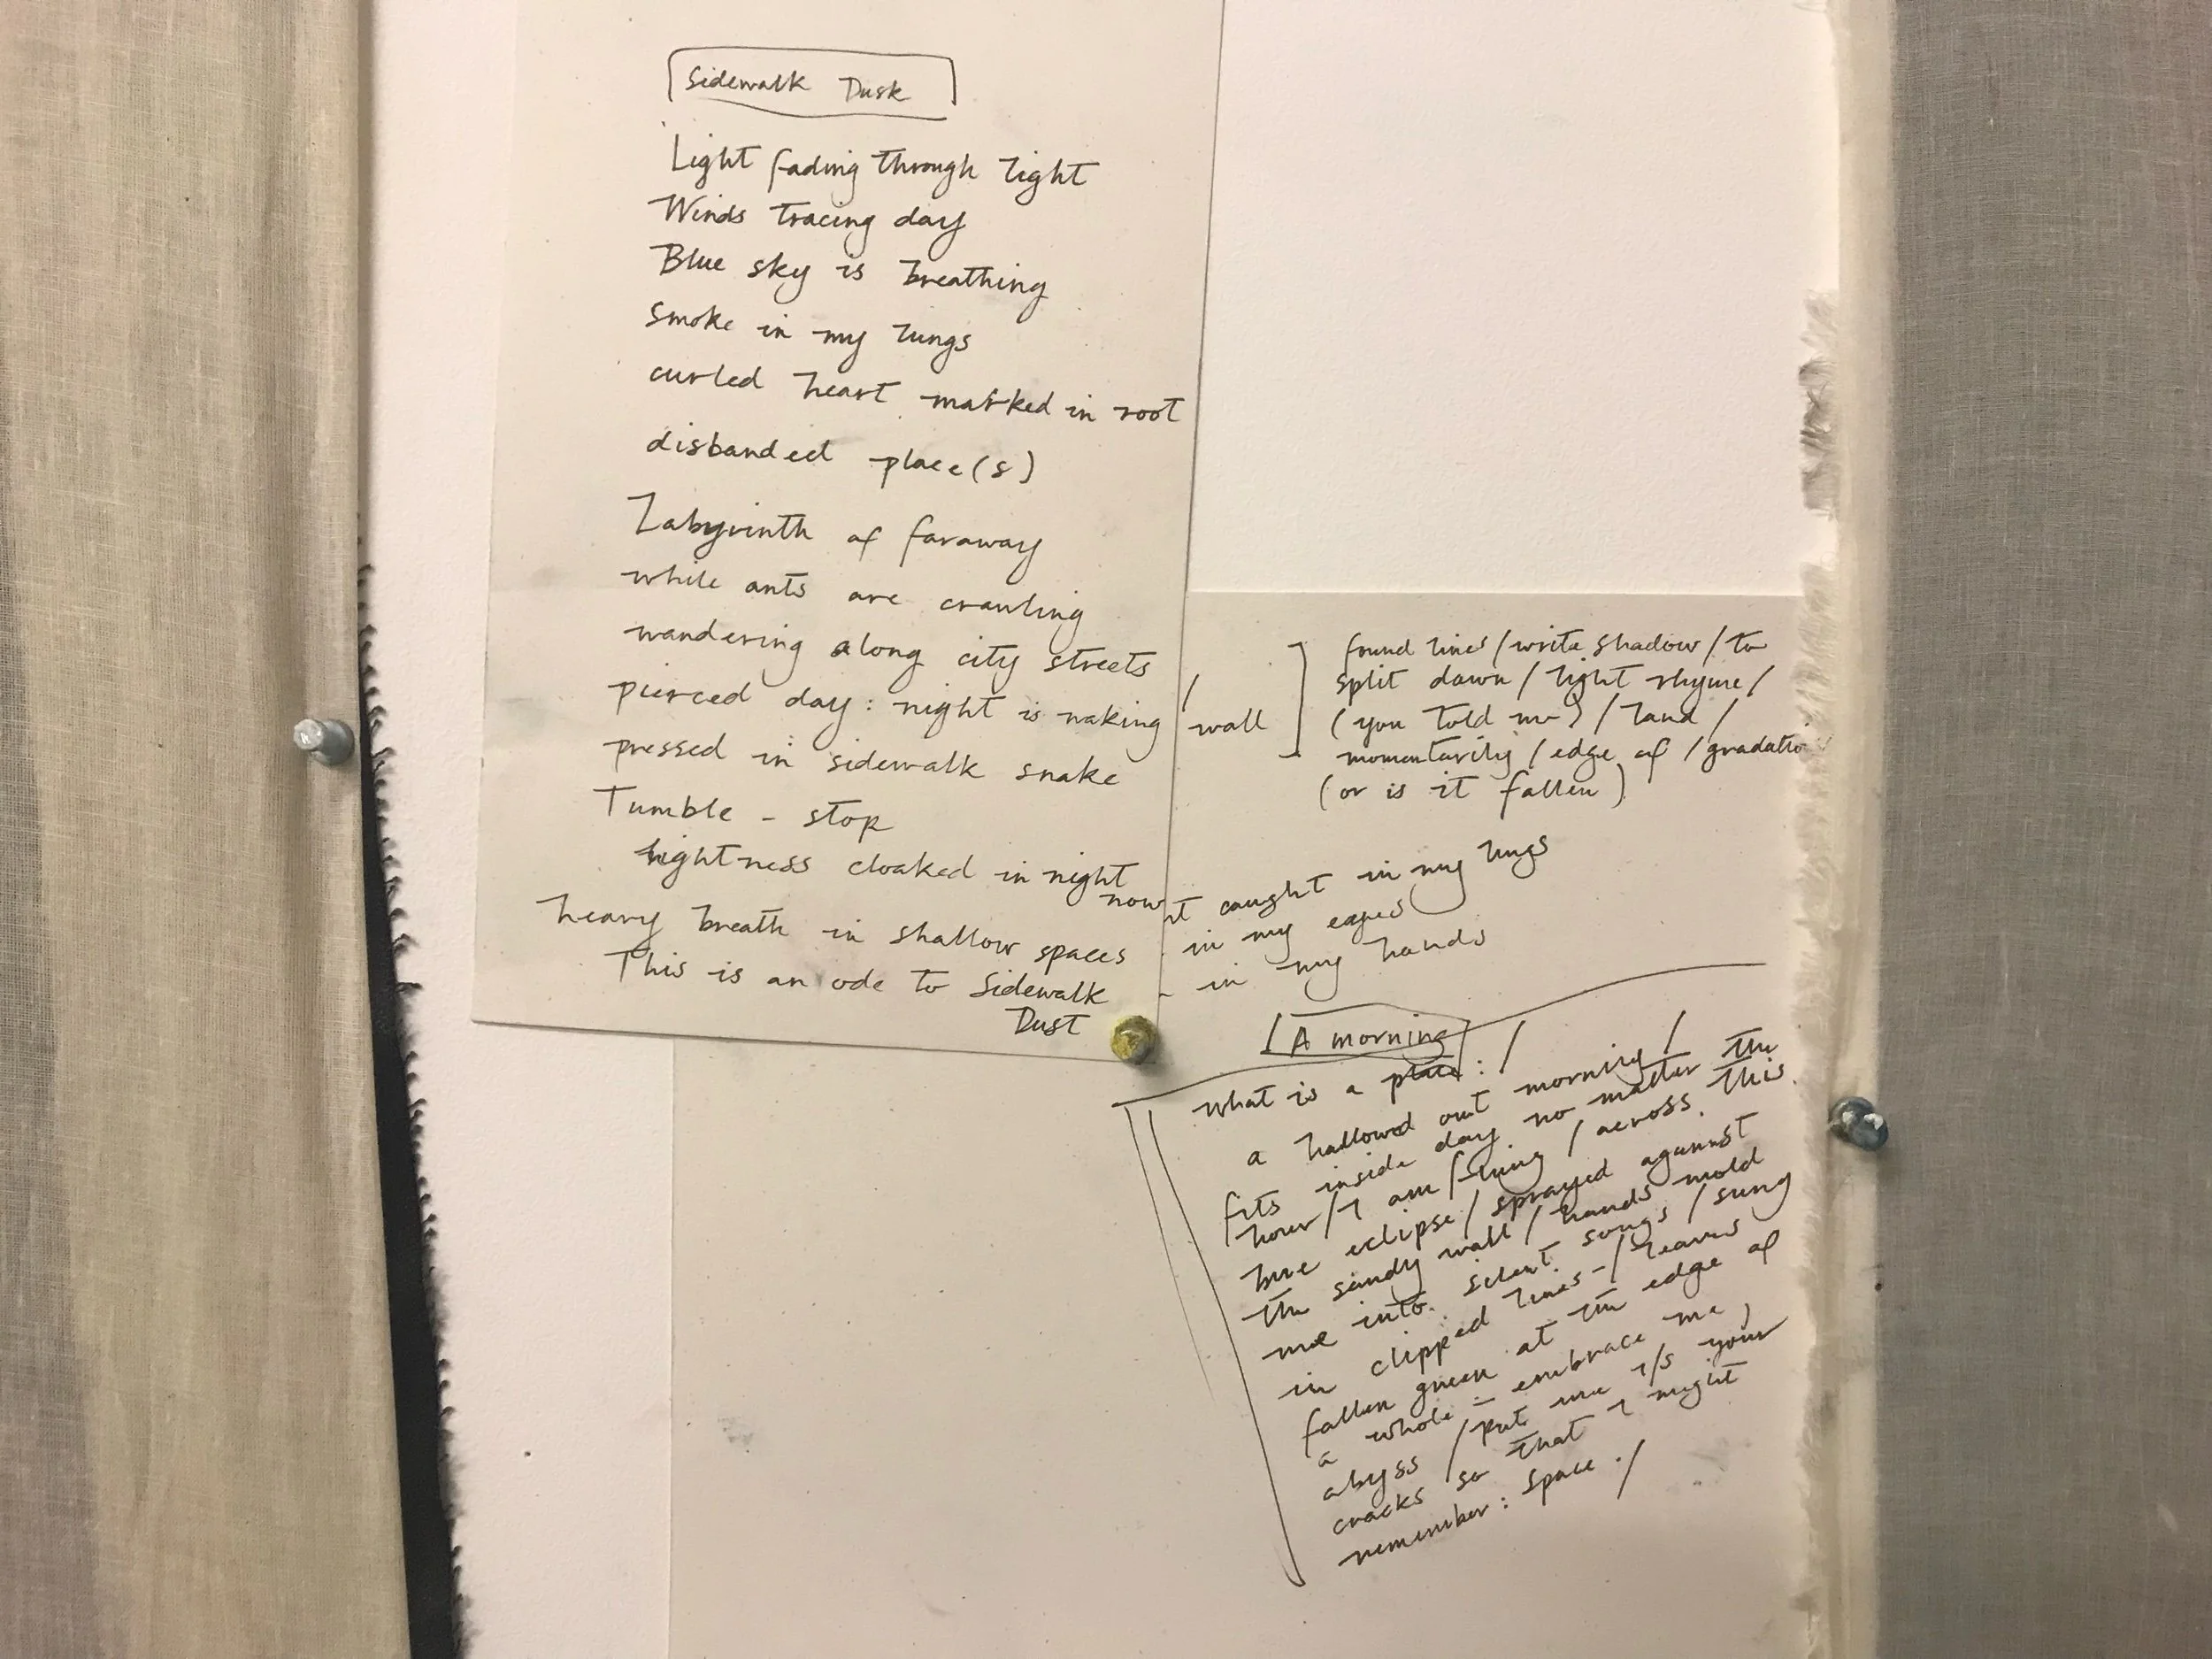 Sidewalk Dusk
Light fading through light
Winds tracing day
Blue sky is breathing
smoke in my lungs
curled heart marked in root
disbanded place(s)
Labyrinth of faraway
while ants are crawling
wandering along city streets
pierced day: night is waking
pressed in sidewalk snake
Tumble - stop
lightness cloaked in night
now
heavy breath in shallow spaces
This is an ode to Sidewalk
Dust
/
wall
found lines/write shadow/to
split dawn/light rhyme/
(you told me)/land/
momentarily/edge of/gradatio
(or is it fallen)
caught in my lungs
in my eyes
- in my hands
/A morning
what is a place:/
a hallowed out morning/
fits inside day no matter the
hour/I am/ling/across this
blue eclipse/sprayed against
the sandy wall/hands mold
me into silent songs/sung
in clipped lines-/leaves
fallen green at the edge of
a whole - embrace me,
abyss/put me i/s your
cracks so that I might
remember: space./